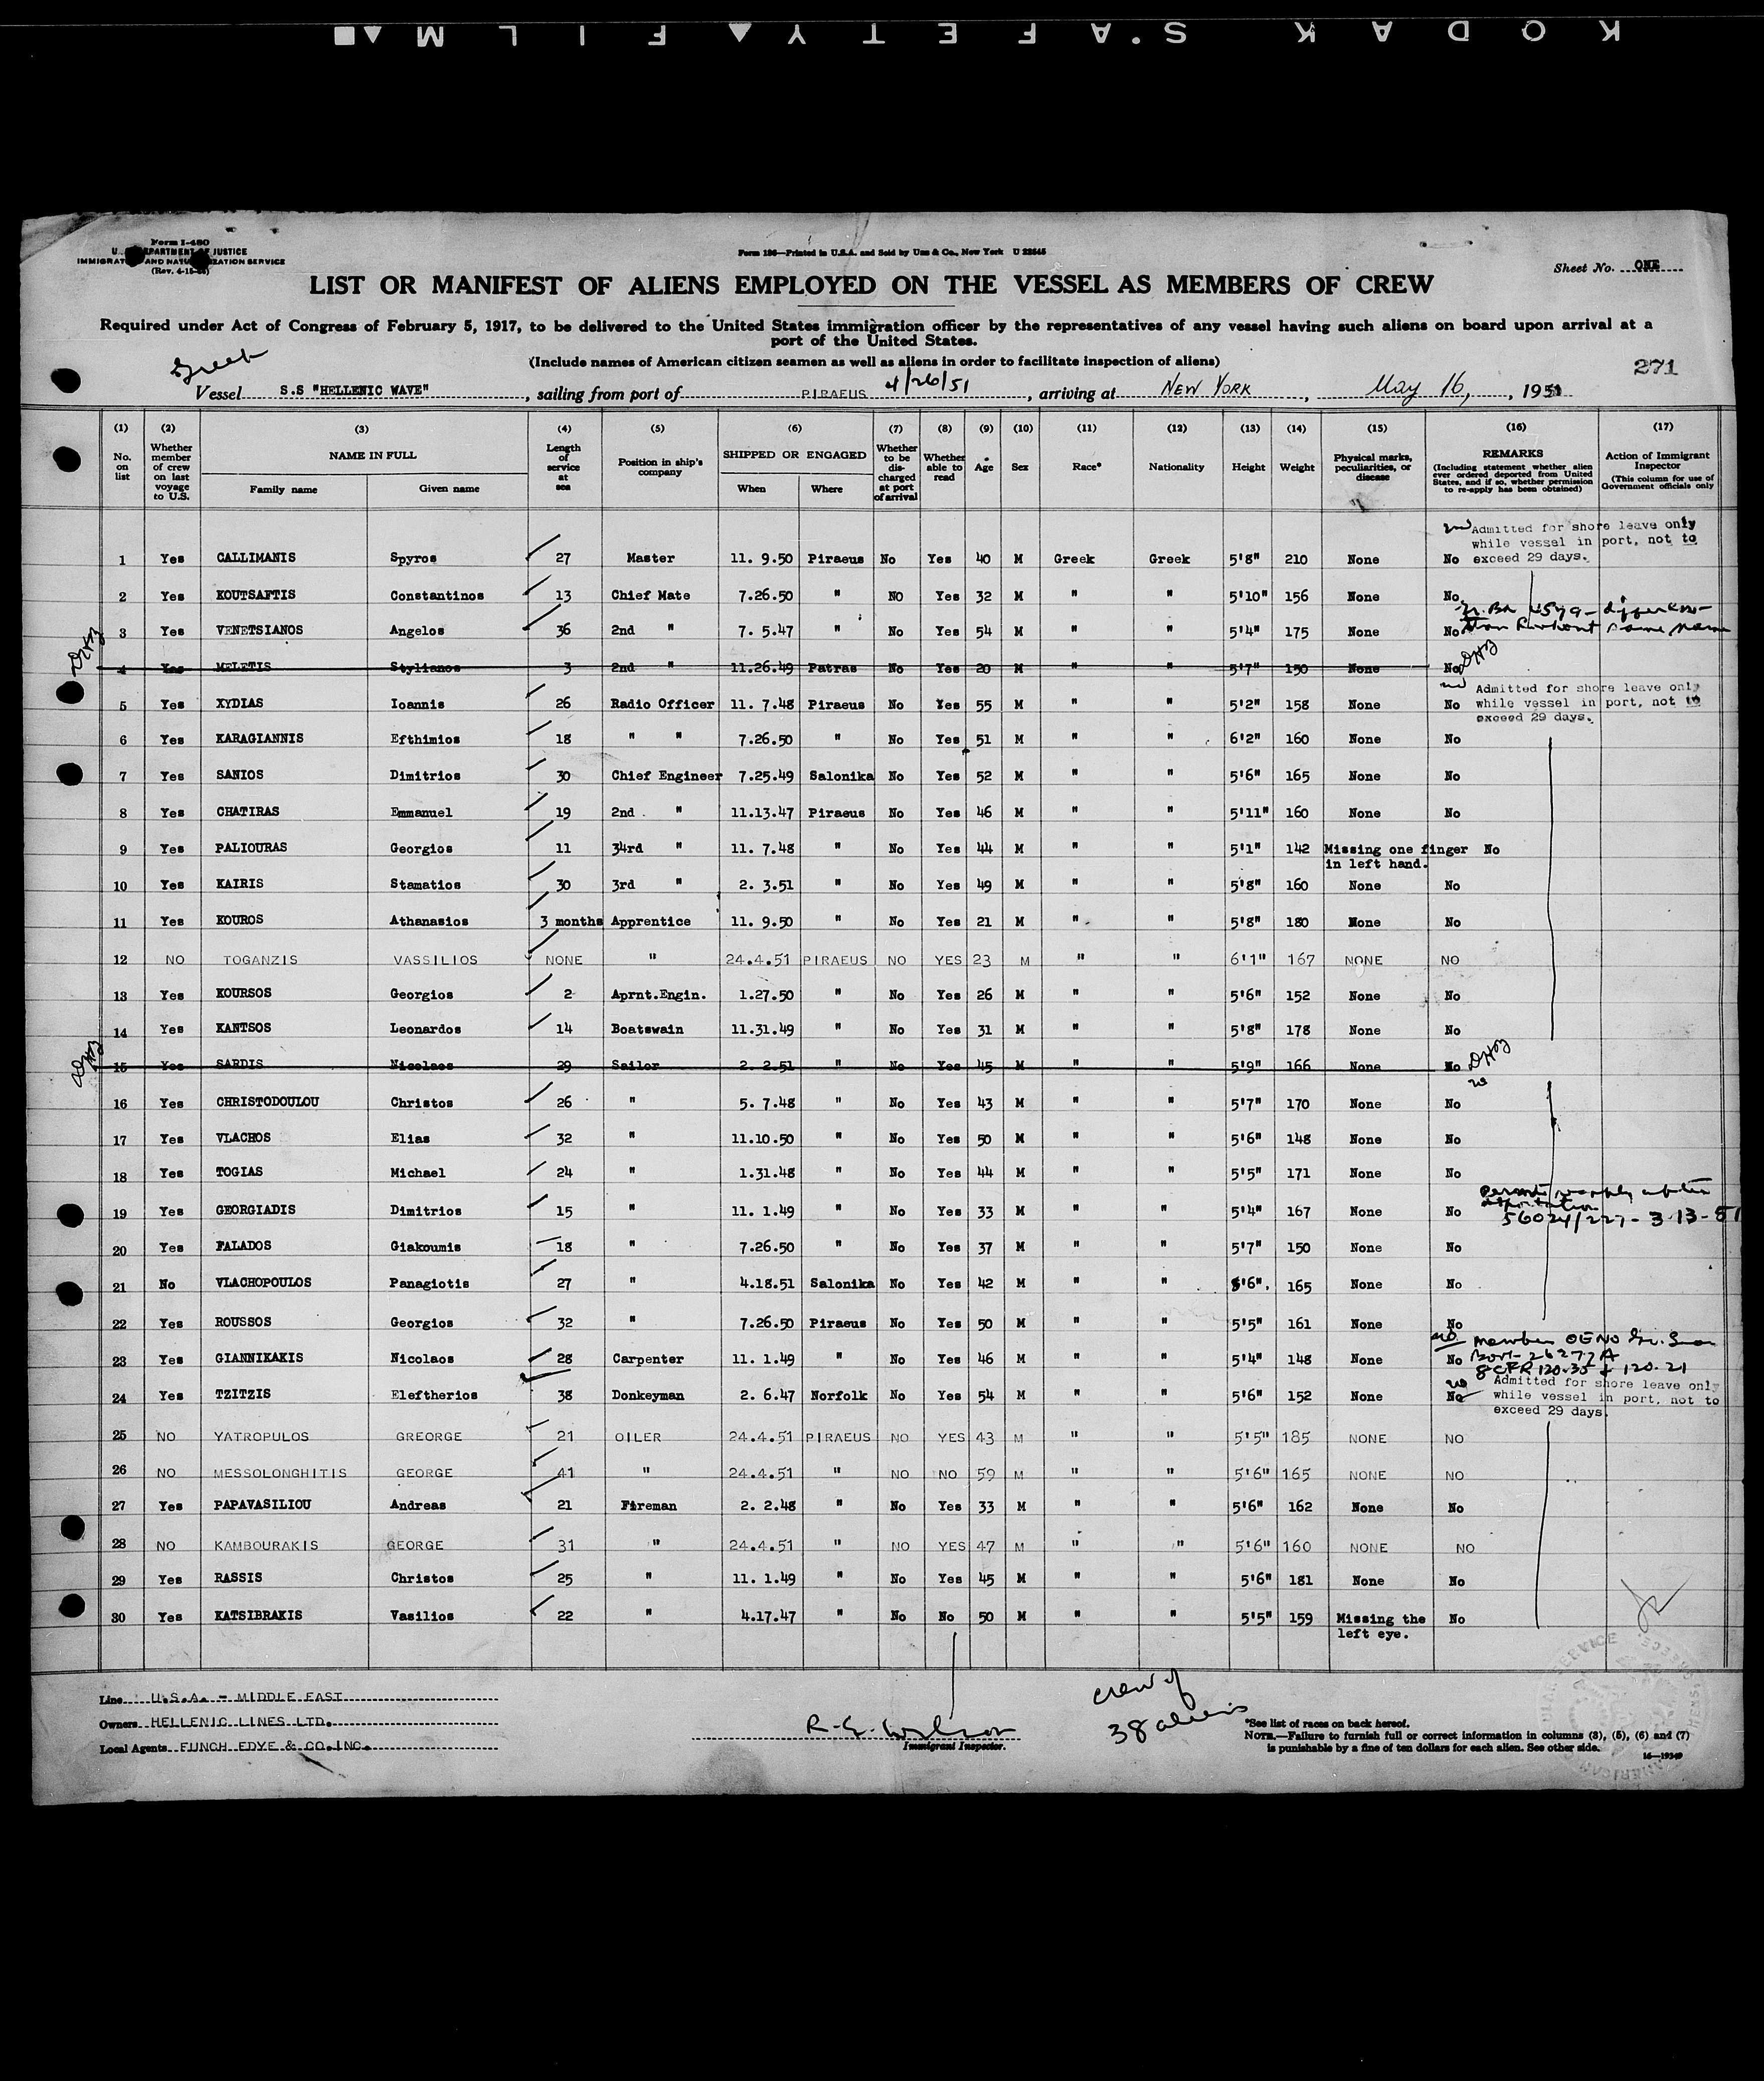 KODAK S'AFETY FILM
Form I-480
U. S. DEPARTMENT OF JUSTICE
IMMIGRATION AND NATURALIZATION SERVICE
Form 186—Printed in U.S.A. and Sold by Unz & Co., New York U 22645
Sheet No. ONE
LIST OR MANIFEST OF ALIENS EMPLOYED ON THE VESSEL AS MEMBERS OF CREW
Required under Act of Congress of February 5, 1917, to be delivered to the United States immigration officer by the representatives of any vessel having such aliens on board upon arrival at a
port of the United States.
(Include names of American citizen seamen as well as aliens in order to facilitate inspection of aliens)
Greek
271
Vessel S.S "HELLENIC WAVE", sailing from port of PIRAEUS 4/26/51, arriving at NEW YORK, May 16, 1951
(1) No. on list (2) Whether member of crew on last voyage to U.S. (3) NAME IN FULL Family name Given name (4) Length of service at sea (5) Position in ship's company (6) SHIPPED OR ENGAGED When Where (7) Whether to be discharged at port of arrival (8) Whether able to read (9) Age (10) Sex (11) Race* (12) Nationality (13) Height (14) Weight (15) Physical marks, peculiarities, or disease (16) REMARKS (Including statement whether alien ever ordered deported from United States, and if so, whether permission to re-apply has been obtained) (17) Action of Immigrant Inspector (This column for use of Government officials only
Admitted for shore leave only
while vessel in port, not to
exceed 29 days.
1 Yes CALLIMANIS Spyros 27 Master 11. 9.50 Piraeus No Yes 40 M Greek Greek 5'8" 210 None No
2 Yes KOUTSAFTIS Constantinos 13 Chief Mate 7.26.50 " NO Yes 32 M " " 5'10" 156 None No
3 Yes VENETSIANOS Angelos 36 2nd " 7. 5.47 " No Yes 54 M " " 5'4" 175 None No
4 Yes MELETIS Stylianos 3 2nd " 11.26.49 Patras No Yes 20 M " " 5'7" 150 None No
Admitted for shore leave only
while vessel in port, not to
exceed 29 days.
5 Yes XYDIAS Ioannis 26 Radio Officer 11. 7.48 Piraeus No Yes 55 M " " 5'2" 158 None No
6 Yes KARAGIANNIS Efthimios 18 " " 7.26.50 " No Yes 51 M " " 6'2" 160 None No
7 Yes SANIOS Dimitrios 30 Chief Engineer 7.25.49 Salonika No Yes 52 M " " 5'6" 165 None No
8 Yes CHATIRAS Emmanuel 19 2nd " 11.13.47 Piraeus No Yes 46 M " " 5'11" 160 None No
9 Yes PALIOURAS Georgios 11 34rd " 11. 7.48 " No Yes 44 M " " 5'1" 142 Missing one finger No
in left hand.
10 Yes KAIRIS Stamatios 30 3rd " 2. 3.51 " No Yes 49 M " " 5'8" 160 None No
11 Yes KOUROS Athanasios 3 months Apprentice 11. 9.50 " No Yes 21 M " " 5'8" 180 None No
12 NO TOGANZIS VASSILIOS NONE " 24.4.51 PIRAEUS NO YES 23 M " " 6'1" 167 NONE NO
13 Yes KOURSOS Georgios 2 Aprnt.Engin. 1.27.50 " No Yes 26 M " " 5'6" 152 None No
14 Yes KANTSOS Leonardos 14 Boatswain 11.31.49 " No Yes 31 M " " 5'8" 178 None No
15 Yes SARDIS Nicolaos 29 Sailor 2. 2.51 " No Yes 45 M " " 5'9" 166 None No
16 Yes CHRISTODOULOU Christos 26 " 5. 7.48 " No Yes 43 M " " 5'7" 170 None No
17 Yes VLACHOS Elias 32 " 11.10.50 " No Yes 50 M " " 5'6" 148 None No
18 Yes TOGIAS Michael 24 " 1.31.48 " No Yes 44 M " " 5'5" 171 None No
19 Yes GEORGIADIS Dimitrios 15 " 11. 1.49 " No Yes 33 M " " 5'4" 167 None No
56024/227 - 3-13-51
20 Yes FALADOS Giakoumis 18 " 7.26.50 " No Yes 37 M " " 5'7" 150 None No
21 No VLACHOPOULOS Panagiotis 27 " 4.18.51 Salonika No Yes 42 M " " 5'6". 165 None No
22 Yes ROUSSOS Georgios 32 " 7.26.50 Piraeus No Yes 50 M " " 5'5" 161 None No
member OENO
23 Yes GIANNIKAKIS Nicolaos 28 Carpenter 11. 1.49 " No Yes 46 M " " 5'4" 148 None No
8 CFR 120.35 & 120.21
Admitted for shore leave only
while vessel in port, not to
exceed 29 days.
24 Yes TZITZIS Eleftherios 38 Donkeyman 2. 6.47 Norfolk No Yes 54 M " " 5'6" 152 None No
25 NO YATROPULOS GREORGE 21 OILER 24.4.51 PIRAEUS NO YES 43 M " " 5'5" 185 NONE NO
26 NO MESSOLONGHITIS GEORGE 41 " 24.4.51 " NO NO 59 M " " 5'6" 165 NONE NO
27 Yes PAPAVASILIOU Andreas 21 Fireman 2. 2.48 " No Yes 33 M " " 5'6" 162 None No
28 NO KAMBOURAKIS GEORGE 31 " 24.4.51 " NO YES 47 M " " 5'6" 160 NONE NO
29 Yes RASSIS Christos 25 " 11. 1.49 " No Yes 45 M " " 5'6" 181 None No
30 Yes KATSIBRAKIS Vasilios 22 " 4.17.47 " No No 50 M " " 5'5" 159 Missing the No
left eye.
Line U.S.A. - MIDDLE EAST
Owners HELLENIC LINES LTD.
Local Agents FUNCH EDYE & CO.INC.
R. G. Wilson
Immigrant Inspector.
crew of
38 aliens
*See list of races on back hereof.
NOTE.—Failure to furnish full or correct information in columns (3), (5), (6) and (7)
is punishable by a fine of ten dollars for each alien. See other side.
16—19349